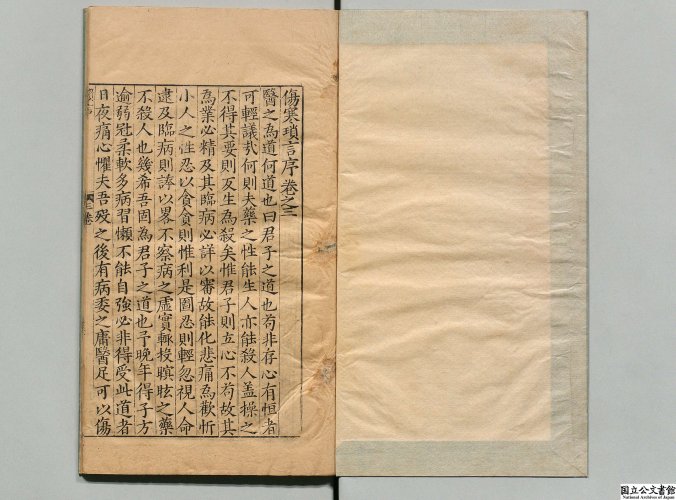 傷寒瑣言序 卷之三
醫之為道何道也曰君子之道也苟非存心有恒者
可輕議㢤何則夫藥之性能生人亦能殺人盖操之
不得其要則反生為殺矣惟君子則立心不苟故其
為業必精及其臨病必詳以審故能化悲痛為歡忻
小人之性忍以貪貪則惟利是圖忍則輕忽視人命
逮及臨病則諑以畧不察病之虛實輙投瞑眩之藥
不殺人也幾希吾固為君子之道也予晚年得子方
逾弱冠柔軟多病習懶不能自強必非得受此道者
日夜痛心懼夫吾殁之後有病委之庸醫足可以傷
國立公文書館
National Archives of Japan